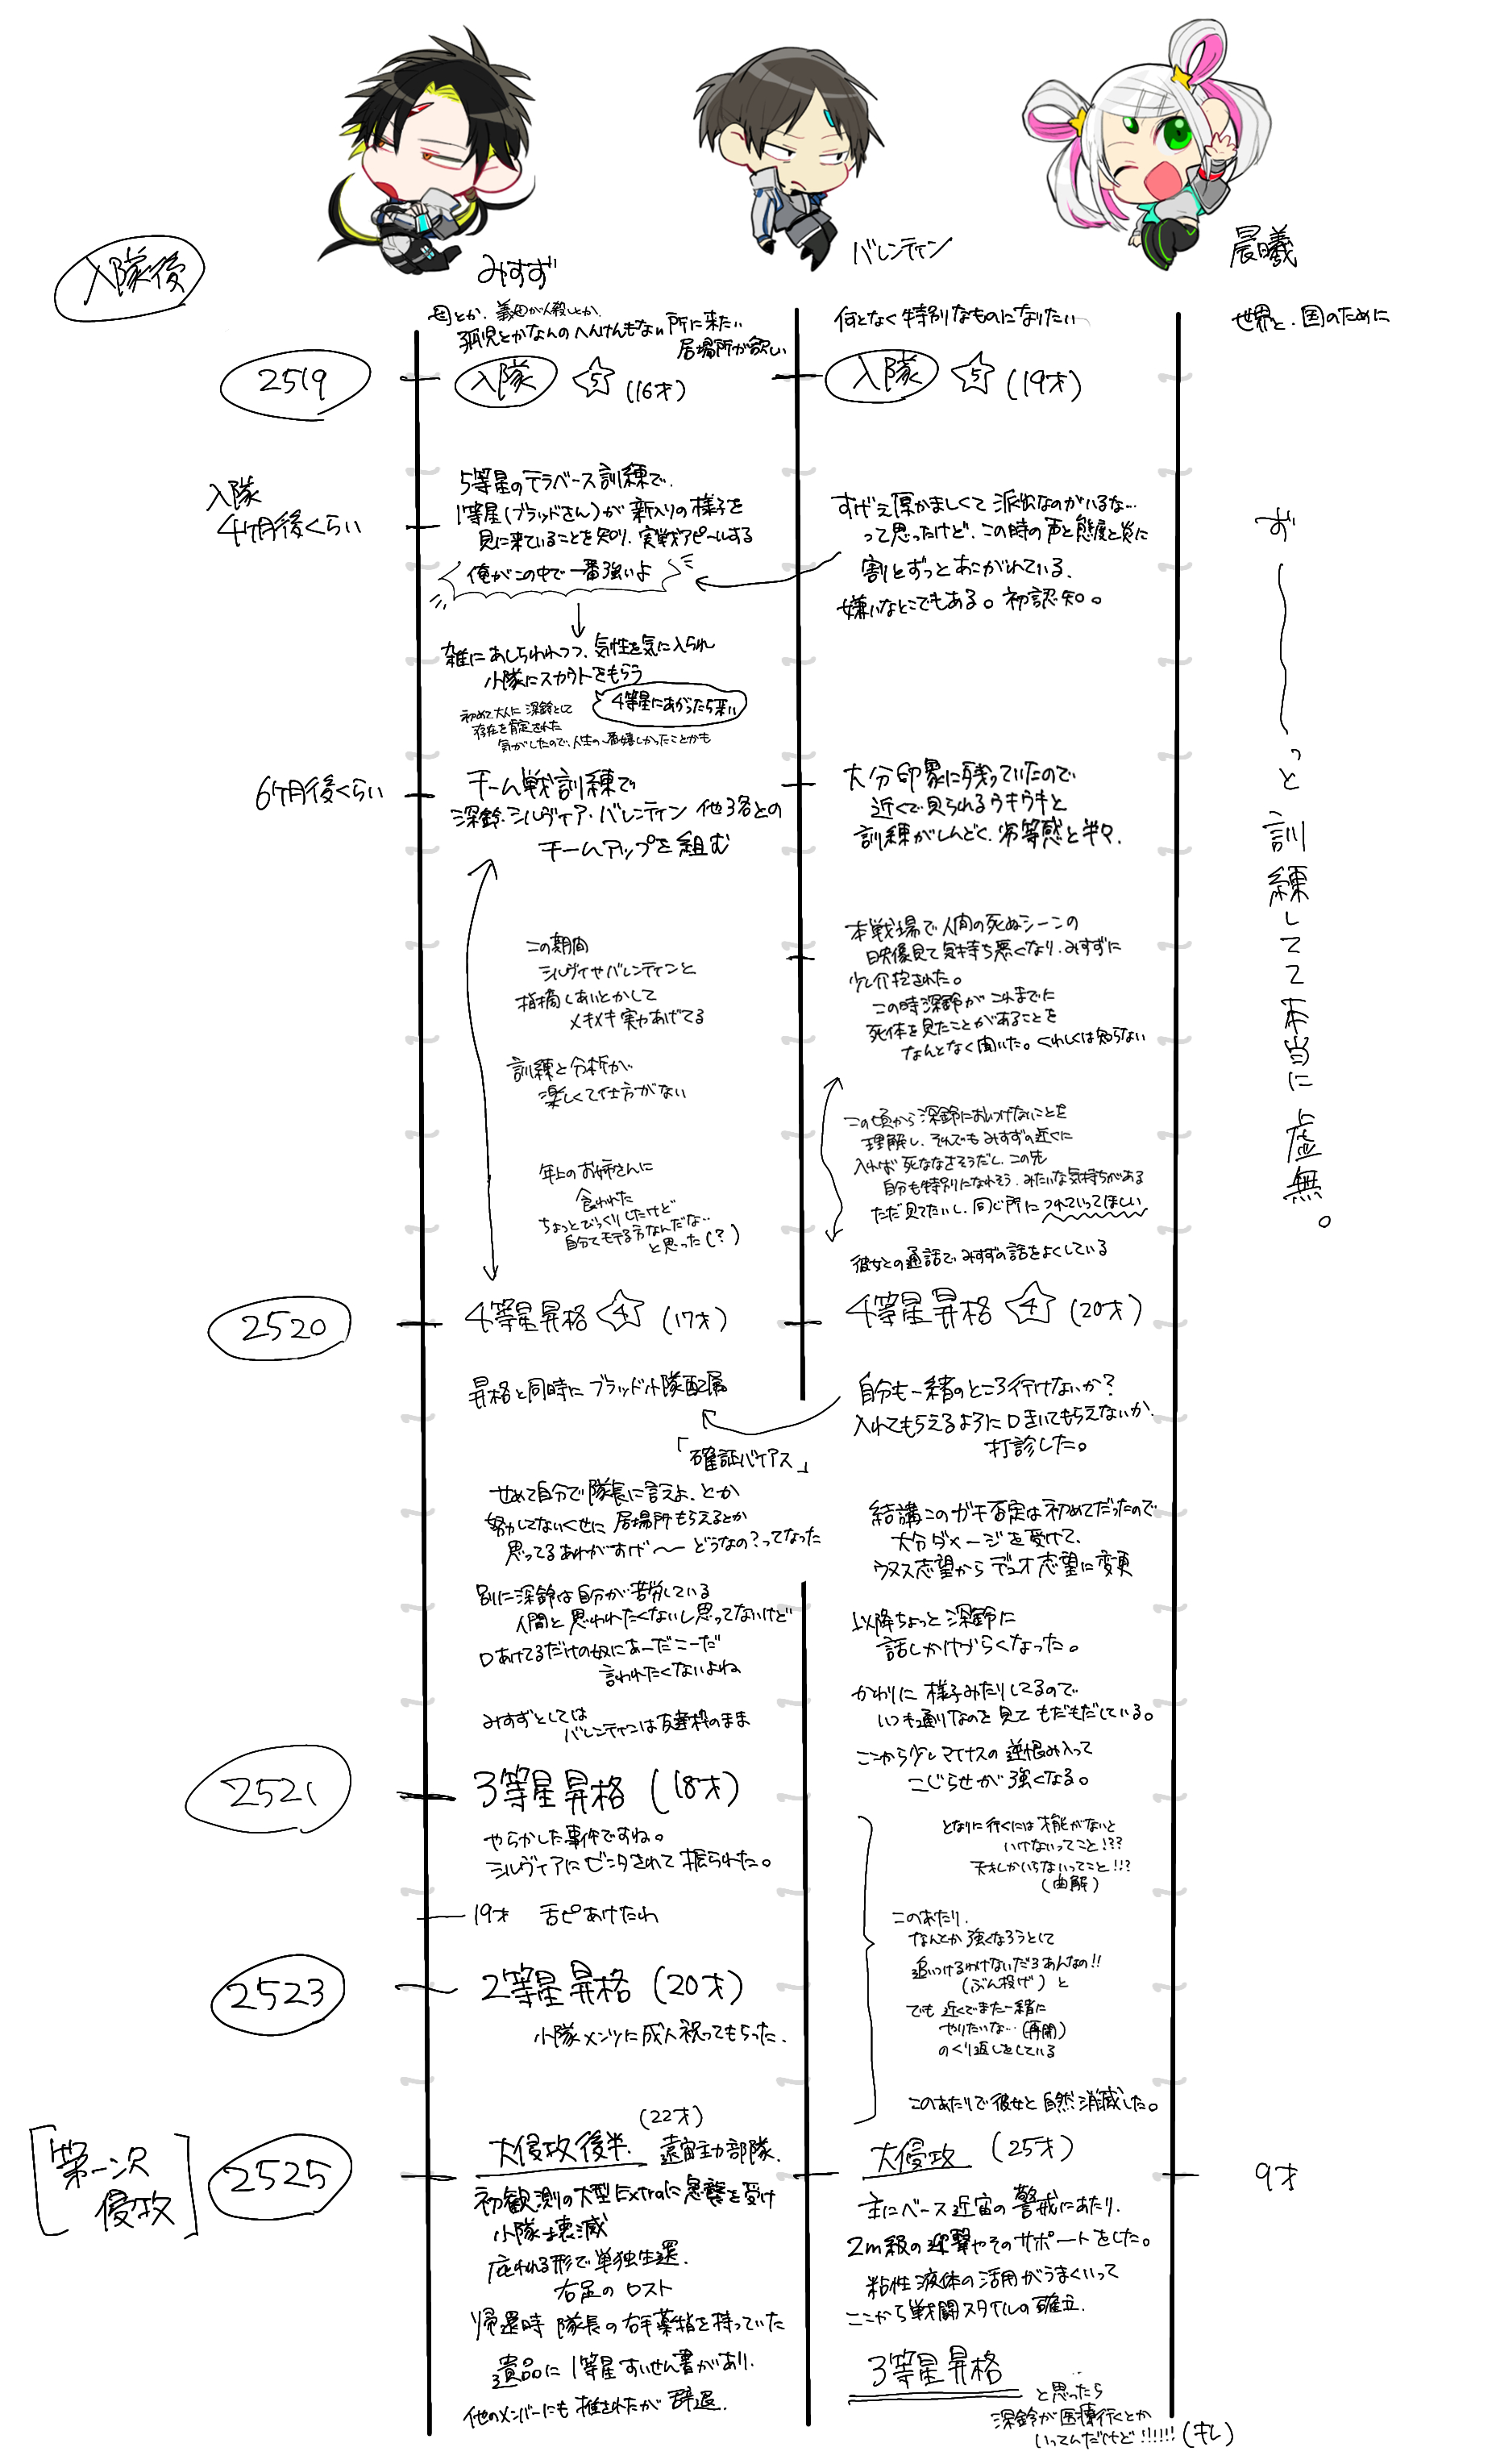 みすず
バレンティン
晨曦
入隊後
母とか、義母が人殺しとか、
孤児とかなんのへんけんもない所に来たい
居場所が欲しい
何となく特別なものになりたい
世界と、国のために
2519
入隊 5 (16才)
入隊 5 (19才)
入隊
4ヶ月後くらい
5等星のテラベース訓練で、
1等星(ブラッドさん)が新入りの様子を
見に来ていることを知り、実戦アピールする
俺がこの中で一番強いよ
雑にあしらわれつつ、気性を気に入られ
小隊にスカウトをもらう
4等星にあがったら来い
初めて大人に深鈴として
存在を肯定された
気がしたので、人生の一番嬉しかったことかも
すげえ厚かましくて派手なのがいるな…
って思ったけど、この時の声と態度と炎に
割とずっとあこがれている、
嫌いなとこでもある。初認知。
ずーーっと訓練してて本当に虚無。
6ヶ月後くらい
チーム戦訓練で
深鈴・シルヴィア・バレンティン 他3名との
チームアップを組む
大分印象に残っていたので
近くで見られるウキウキと
訓練がしんどく、劣等感と半々、
この期間
シルヴィやバレンティンと
指摘しあいとかして
メキメキ実力あげてる
訓練と分析が
楽しくて仕方がない
年上のお姉さんに
食われた
ちょっとびっくりしたけど
自分てモテる方なんだな…
と思った(?)
本戦場で人間の死ぬシーンの
映像見て気持ち悪くなり、みすずに
少し介抱された。
この時深鈴がこれまでに
死体を見たことがあることを
なんとなく聞いた。くわしくは知らない
この頃から深鈴においつけないことを
理解し、それでもみすずの近くに
入れば死ななさそうだし、この先
自分も特別になれそう、みたいな気持ちがある
ただ見てたいし、同じ所につれていってほしい
彼女との通話でみすずの話をよくしている
2520
4等星昇格 4 (17才)
4等星昇格 4 (20才)
昇格と同時にブラッド小隊配属
自分も一緒のところ行けないか?
入れてもらえるように口きいてもらえないか、
打診した。
「確証バイアス」
せめて自分で隊長に言えよ、とか
努力してないくせに居場所もらえるとか
思ってるあれがすげ〜〜どうなの?ってなった
別に深鈴は自分が苦労している
人間と思われたくないし思ってないけど
口あけてるだけの奴にあーだこーだ
言われたくないよね
みすずとしては
バレンティンは友達枠のまま
結構このガチ否定は初めてだったので
大分ダメージを受けて、
ウヌス志望からデュオ志望に変更
以降ちょっと深鈴に
話しかけづらくなった。
かわりに様子みたりしてるので
いつも通りなのを見てもだもだしている。
ここから少しマイナスの逆恨み入って
こじらせが強くなる。
2521
3等星昇格 (18才)
やらかした事件ですね。
シルヴィアにビンタされて振られた。
19才 舌ピあけたわ
となりに行くには才能がないと
いけないってこと!??
天才しかいらないってこと!!?
(曲解)
このあたり、
なんとか強くなろうとして
追いつけるわけないだろあんなの!!
(ぶん投げ)と
でも近くでまた一緒に
やりたいな…(再開)
のくり返しをしている
このあたりで彼女と自然消滅した。
2523
2等星昇格 (20才)
小隊メンツに成人祝ってもらった、
[第一次侵攻]
2525
(22才)
大侵攻後半、遠宙主力部隊、
初観測の大型Extraに急襲を受け
小隊壊滅
庇われる形で単独生還、
右足のロスト
帰還時 隊長の右手薬指を持っていた
遺品に1等星すいせん書があり、
他のメンバーにも推されたが辞退、
大侵攻 (25才)
主にベース近宙の警戒にあたり、
2m級の迎撃やそのサポートをした。
粘性液体の活用がうまくいって
ここから戦闘スタイルの確立、
3等星昇格
と思ったら
深鈴が医療行くとか
いってんだけど!!!!!!(キレ)
9才